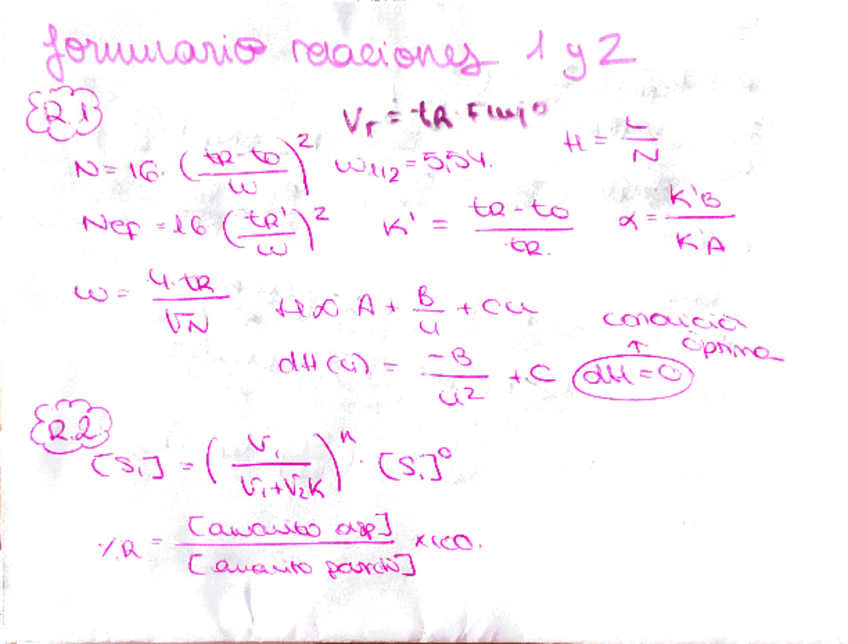 formulario relaciones 1 y 2
R.1
Vr = tR · Flujo
H = L/N
N = 16 · ((tR - t0)/w)^2 w1/2 = 5,54.
Nef = 16 (tR'/w)^2 K' = (tR - t0)/tR. α = K'B/K'A
w = 4·tR/√N H ∝ A + B/u + Cu
condició óptima
dH(u) = -B/u2 + C dH = 0
R.2
[S1] = (V1/(V1+V2K))^n · [S1]^0
%R = [analito]/[analito] × 100.